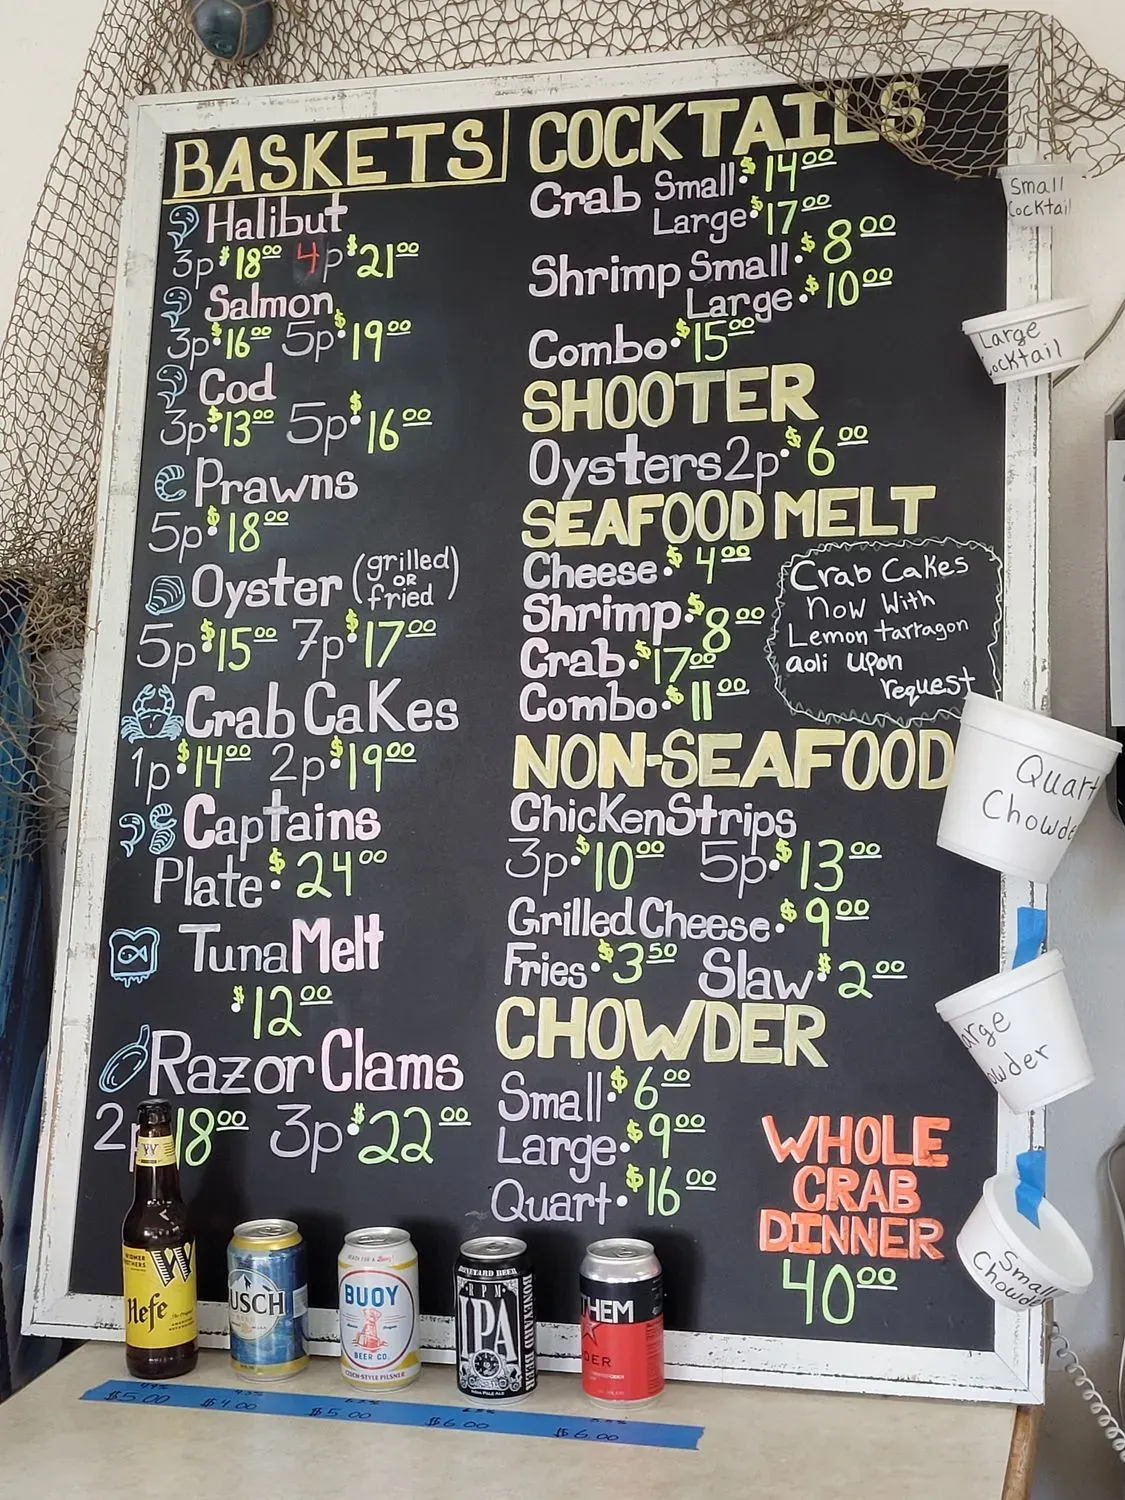 BASKETS
Halibut
3p $18.00 4p $21.00
Salmon
3p $16.00 5p $19.00
Cod
3p $13.00 5p $16.00
Prawns
5p $18.00
Oyster (grilled OR fried)
5p $15.00 7p $17.00
Crab Cakes
1p $14.00 2p $19.00
Captains
Plate $24.00
Tuna Melt
$12.00
Razor Clams
2p 18.00 3p $22.00
COCKTAILS
Crab Small $14.00
Large $17.00
Shrimp Small $8.00
Large $10.00
Combo $15.00
SHOOTER
Oysters 2p $6.00
SEAFOOD MELT
Cheese $4.00
Shrimp $8.00
Crab $17.00
Combo $11.00
Crab Cakes
now with
Lemon tartagon
aoli upon
request
NON-SEAFOOD
Chicken Strips
3p $10.00 5p $13.00
Grilled Cheese $9.00
Fries $3.50 Slaw $2.00
CHOWDER
Small $6.00
Large $9.00
Quart $16.00
WHOLE
CRAB
DINNER
40.00
Small
Cocktail
Large
Cocktail
Quart
Chowde
arge
wder
Small
Chowd
W
W
Hefe
USCH
BUOY
BEER CO.
CZECH-STYLE PILSNER
BONEYARD BEER
RPM
IPA
BONEYARD BEER
INDIA PALE ALE
THEM
DER
$5.00 $4.00 $5.00 $6.00 $6.00